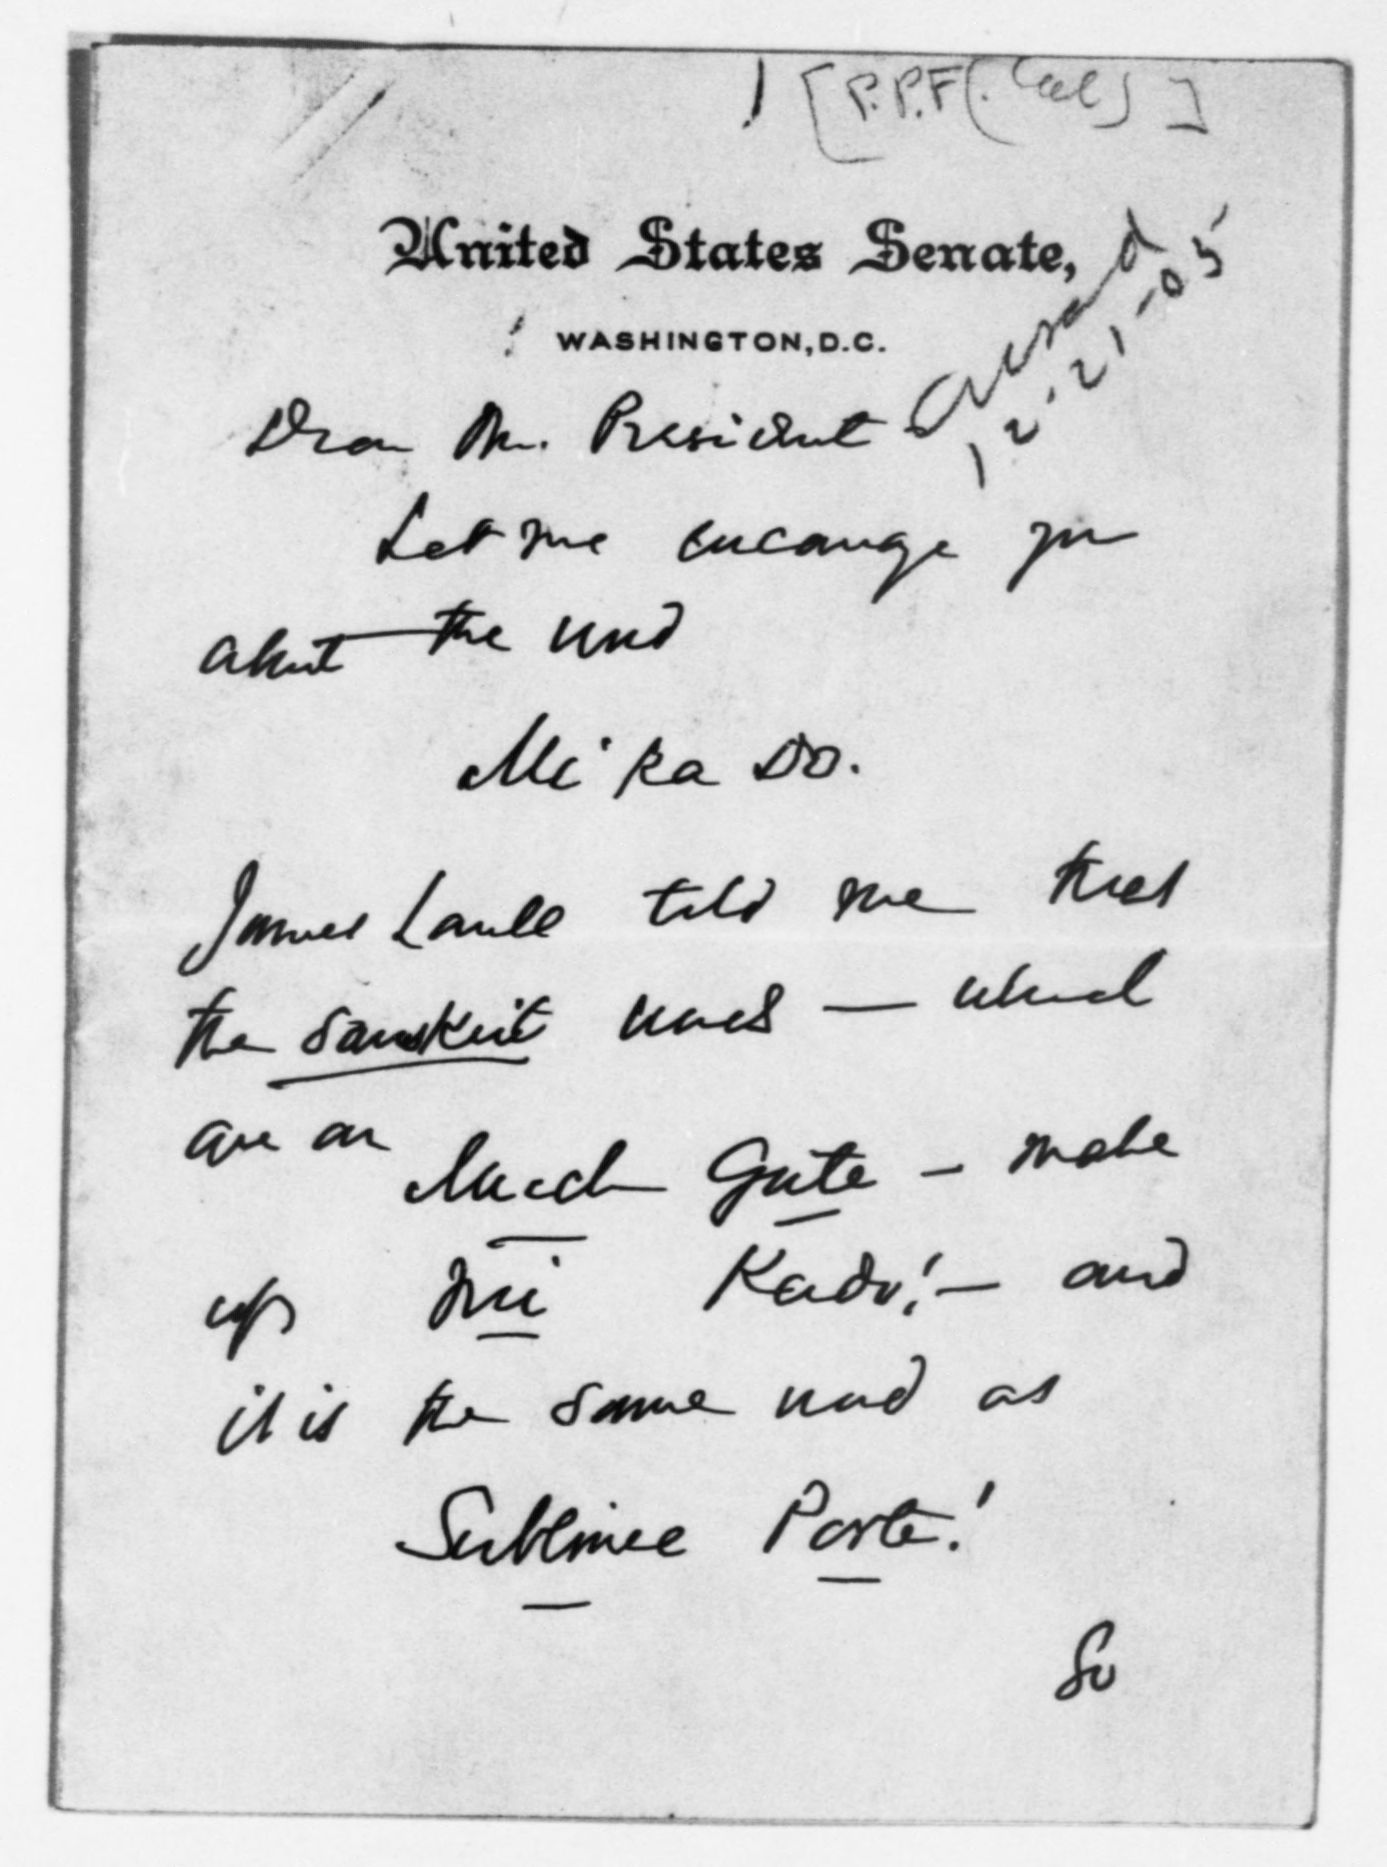 [P.P.F (. Cal)]
United States Senate,
WASHINGTON, D.C.
12-21-05
Dear Mr. President
Let me encourage you
about the word
Mi ka Do.
James Lowell told me that
the sanskrit words — which
are on Much Gate — make
up Mi Kado! — and
it is the same word as
Sublime Porte!
So